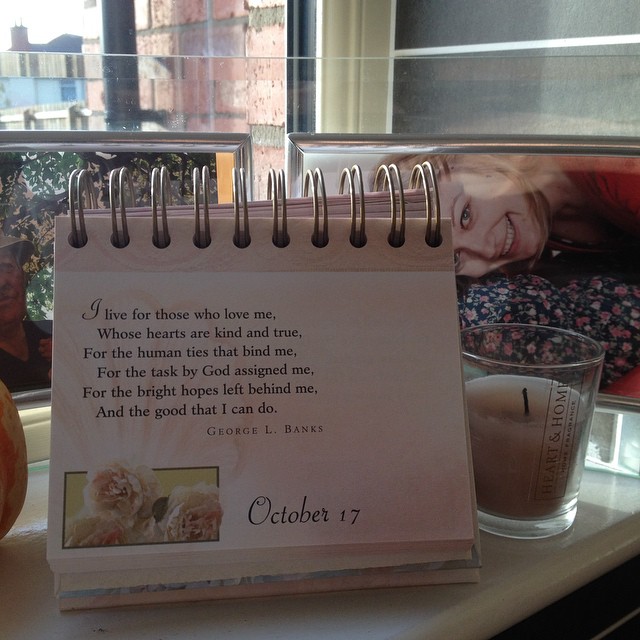 I live for those who love me,
Whose hearts are kind and true,
For the human ties that bind me,
For the task by God assigned me,
For the bright hopes left behind me,
And the good that I can do.
GEORGE L. BANKS
October 17
HEART & HOME